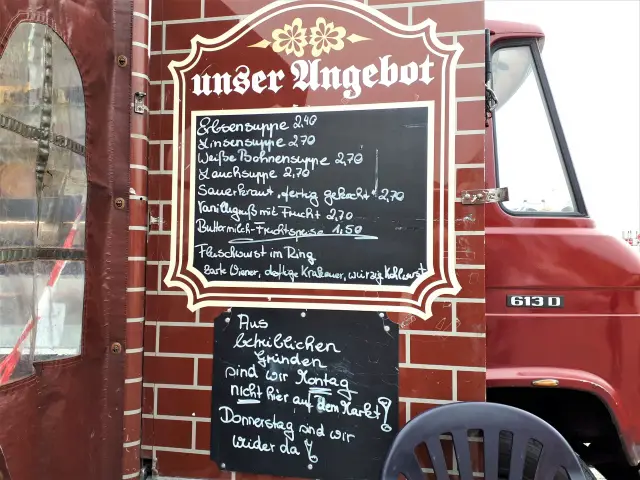 unser Angebot
Erbsensuppe 2,40
Linsensuppe 2,70
Weiße Bohnensuppe 2,70
Lauchsuppe 2,70
Sauerkraut, fertig gekocht 2,70
Vanillegrieß mit Frucht 2,70
Buttermilch-Fruchtspeise 1,50
Fleischwurst im Ring
zarte Wiener, deftige Krakauer, würzige Kohlwurst
Aus
betrieblichen
Gründen
sind wir Montag
nicht hier auf dem Markt!
Donnerstag sind wir
wieder da!
613 D